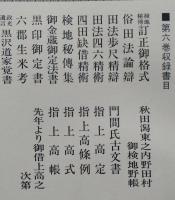 ■第六巻収録書目
訂正御格式
俗田法論辯
田法歩尺精辯
田法四六精辯
四田缺借精術
検地秘傳集
御金蔵御定法書
黒印御定書
六郡生米考
黒沢道家覚書
秋田潟東之内野田村
御検地野帳
門間氏古文書
指上高定
指上高条例
指上高式
指上高帳
先年より御借上高之
次第